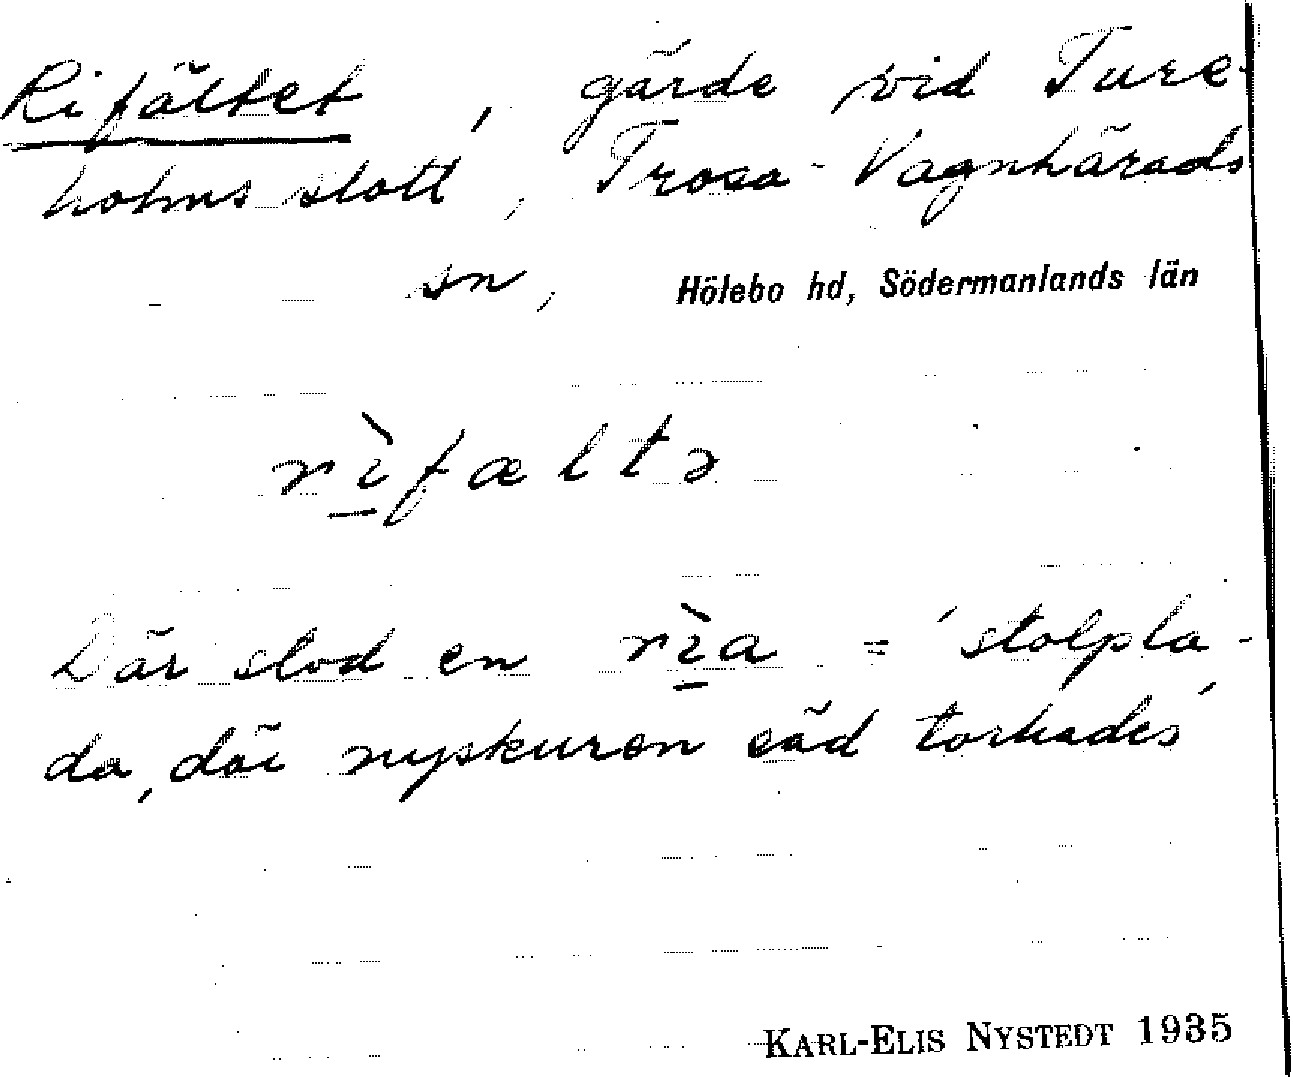 Rifältet, gärde vid Ture-
holms slott, Trosa-Vagnhärads
sn, Hölebo hd, Södermanlands län
rı̀fæltə
Där stod en rı̀a = 'stolpla-
da, där nyskuren säd torkades'
KARL-ELIS NYSTEDT 1935